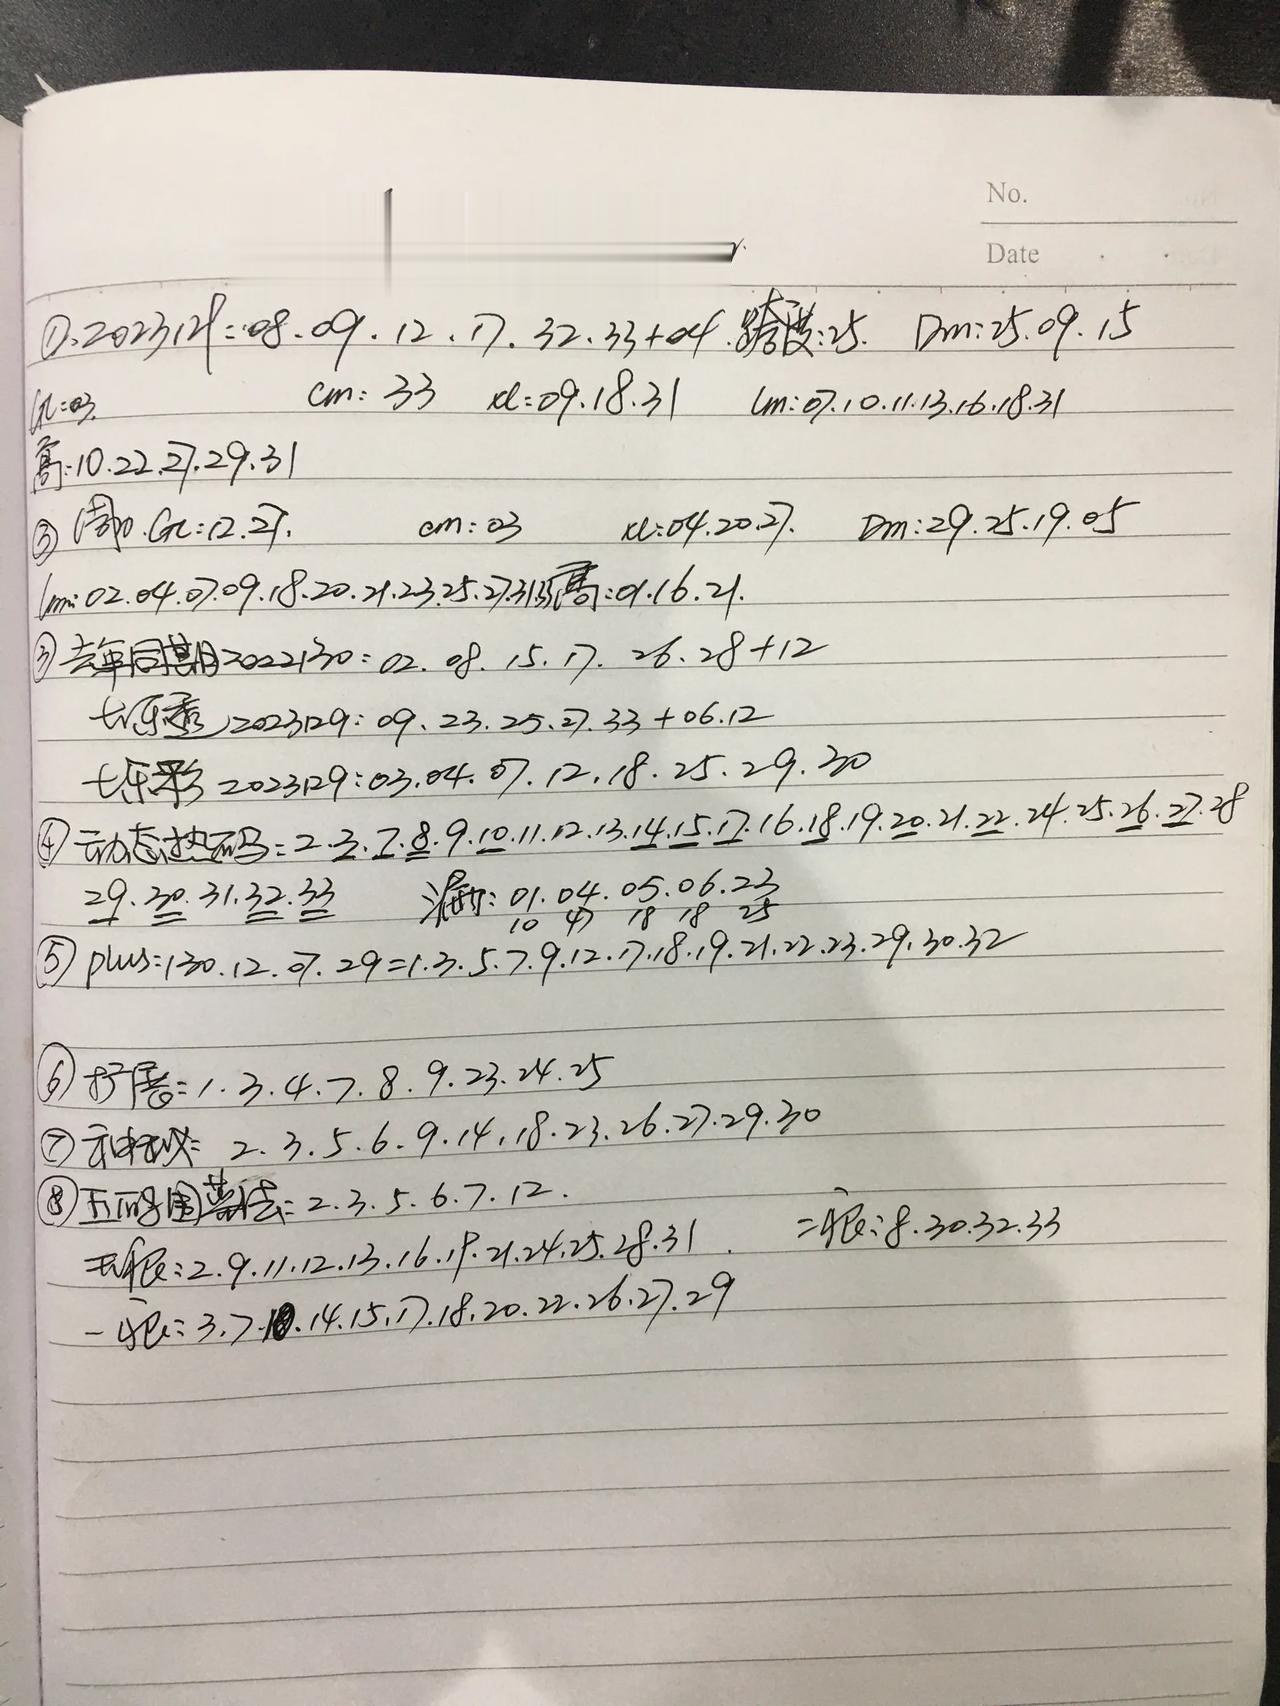 No.
Date
①.2023129=08.09.12.17.32.33+04.跨度:25. Dm:25.09.15
GL=03. cm:33 xl:09.18.31 lm:07.10.11.13.16.18.31
高:10.22.27.29.31
② GL:12.27. cm:03 xl:04.20.27. Dm:29.25.19.05
lm:02.04.07.09.18.20.21.23.25.27.31.33高:01.16.21.
③去年同期2022130=02.08.15.17.26.28+12
大乐透2023129:09.23.25.27.33+06.12
七乐彩2023129:03.04.07.12.18.25.29.30
④动态热码=2.3.7.8.9.10.11.12.13.14.15.17.16.18.19.20.21.22.24.25.26.27.28
29.30.31.32.33 :01.04.05.06.23
10 47 18 18 25
⑤plus=130.12.07.29=1.3.5.7.9.12.17.18.19.21.22.23.29.30.32
⑥扩展=1.3.4.7.8.9.23.24.25
⑦ 2.3.5.6.9.14.18.23.26.27.29.30
⑧五码围蓝法=2.3.5.6.7.12.
=2.9.11.12.13.16.19.21.24.25.28.31. 二:8.30.32.33
一:3.7.10.14.15.17.18.20.22.26.27.29